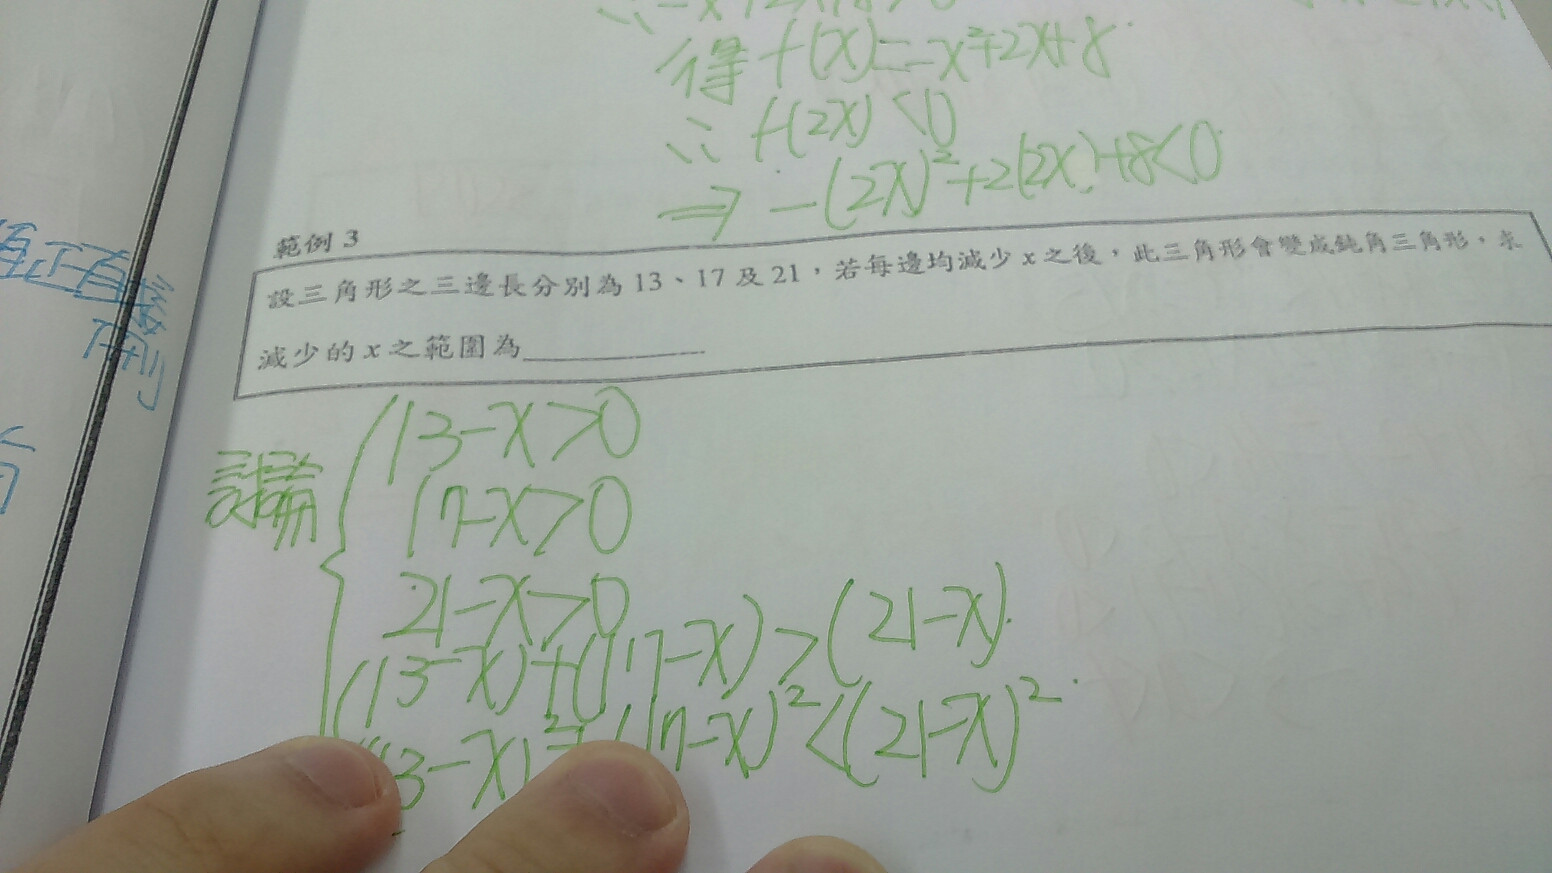 得 f(x)=-x²+2x+8
∴ f(2x)<0
⇒ -(2x)²+2(2x)+8<0
範例 3
設三角形之三邊長分別為 13、17 及 21，若每邊均減少 x 之後，此三角形會變成鈍角三角形，求
減少的 x 之範圍為
討論
13-x>0
17-x>0
21-x>0
(13-x)+(17-x)>(21-x)
(13-x)²+(17-x)²<(21-x)²